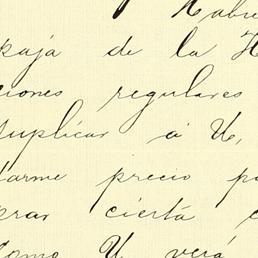 Habre
kaja de la H
ciones regulares
suplicar á U,
darme precio po
prar cierta c
Como U. verá